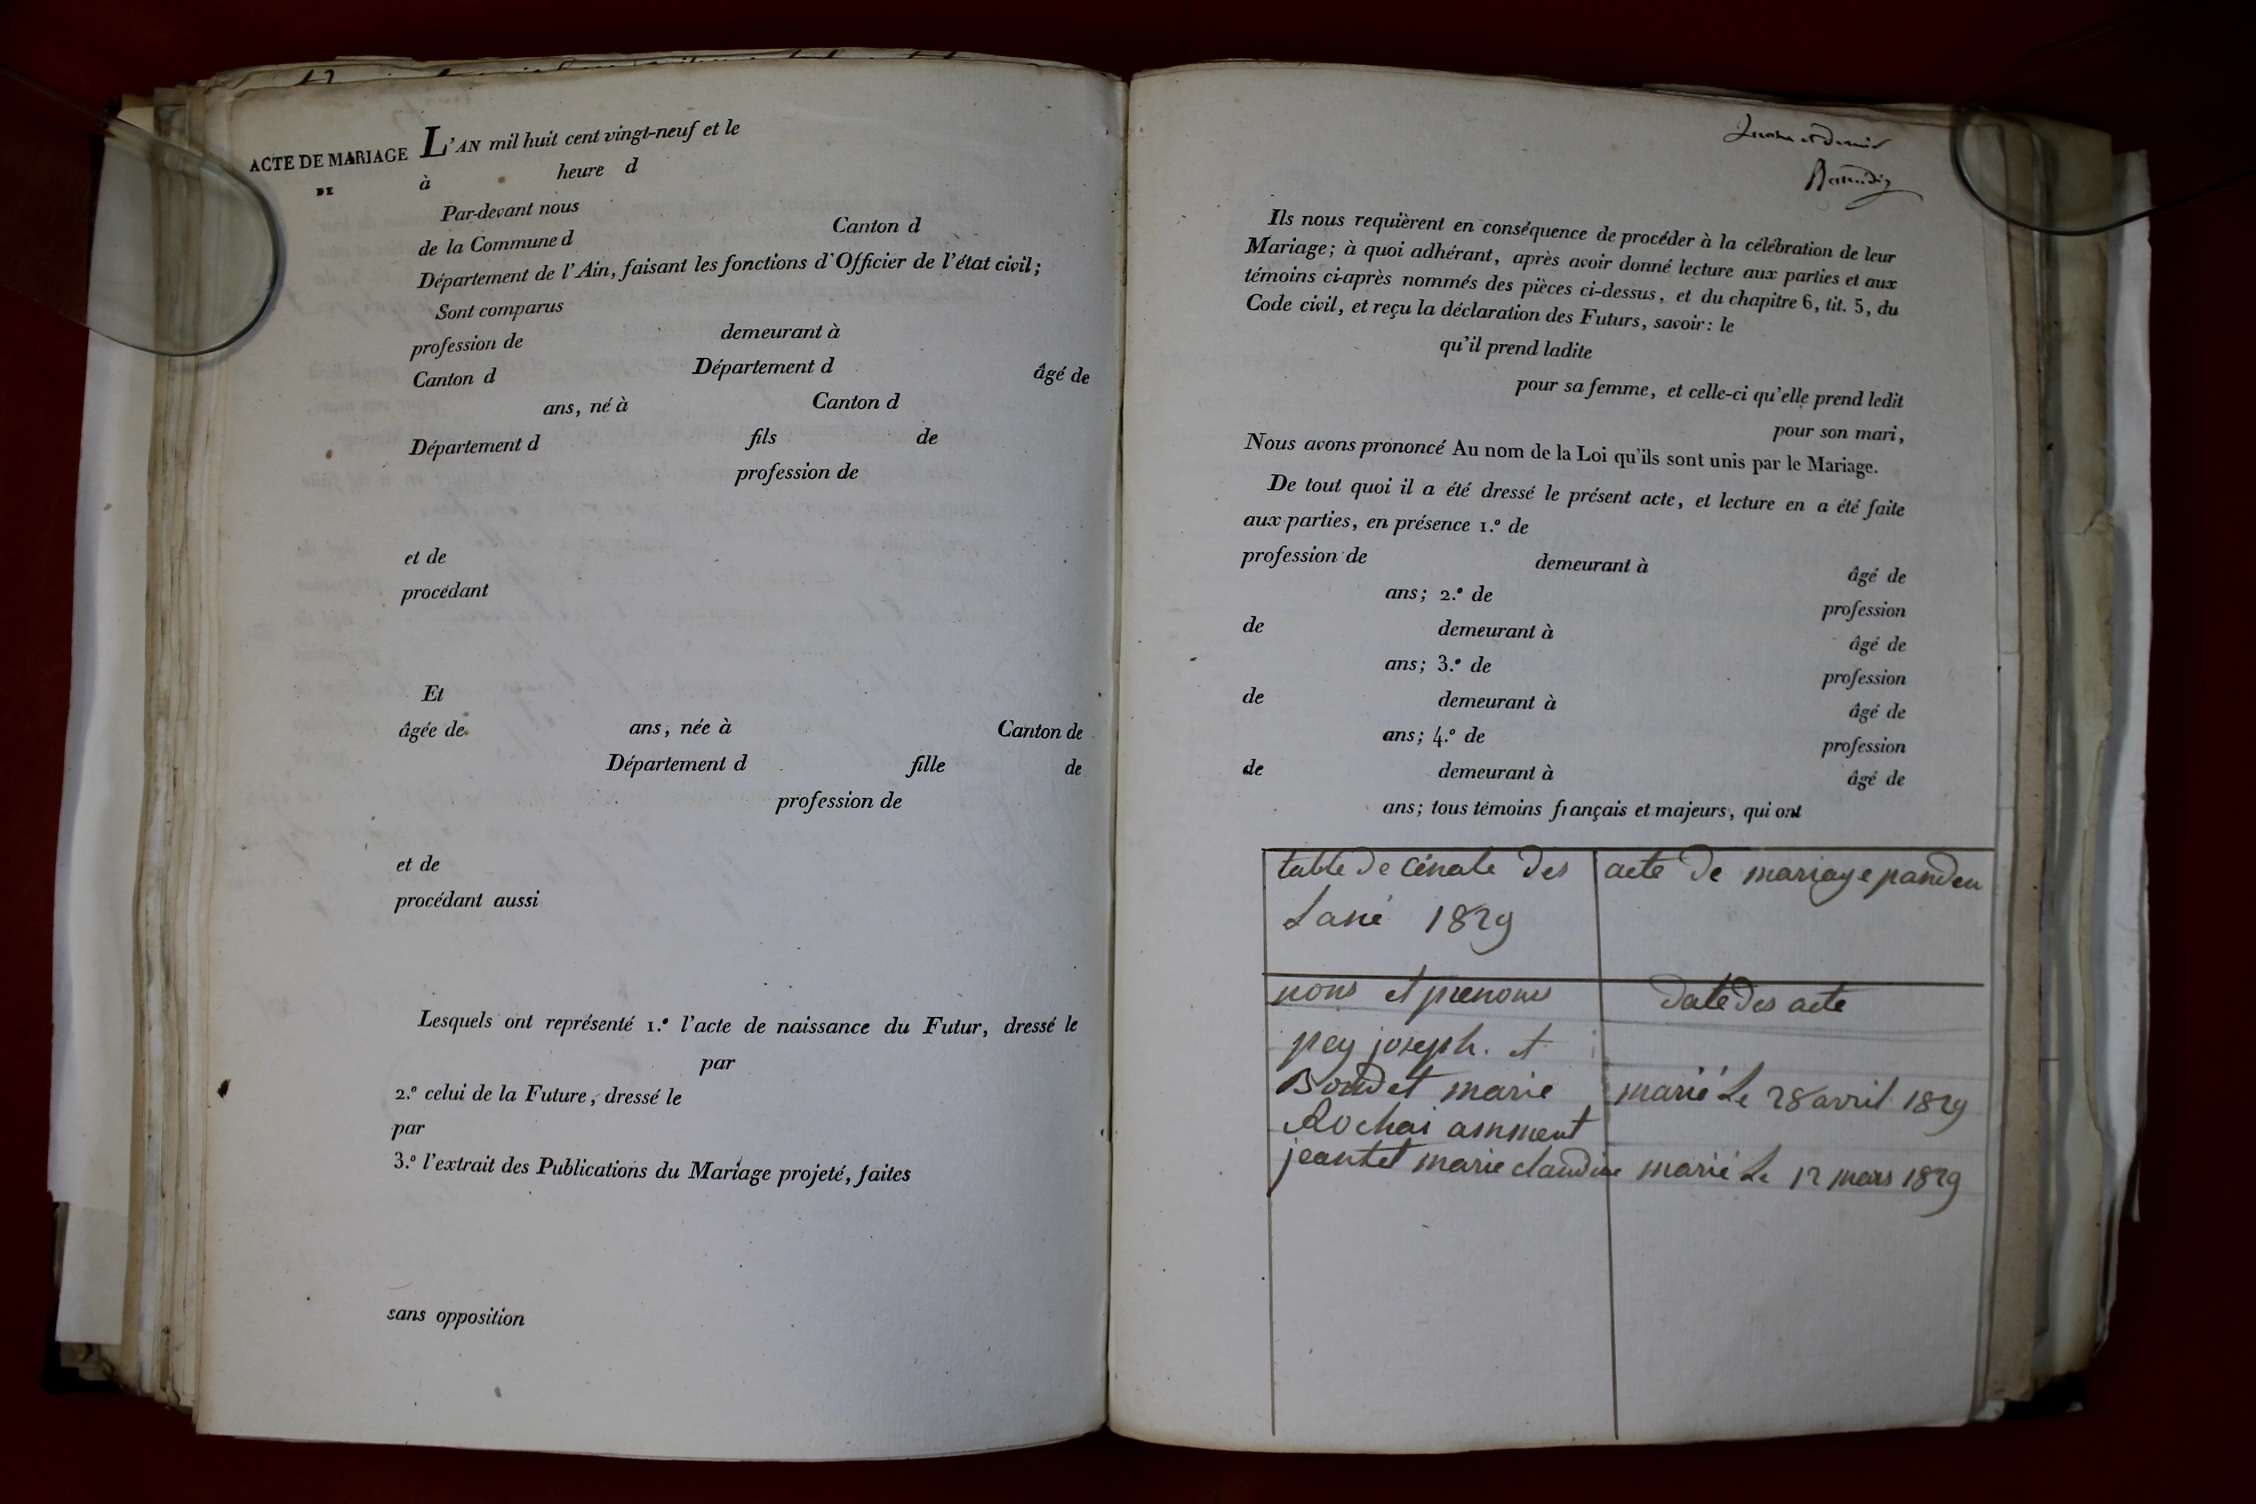 ACTE DE MARIAGE
DE
L'AN mil huit cent vingt-neuf et le
à heure d
Par-devant nous
de la Commune d Canton d
Département de l'Ain, faisant les fonctions d'Officier de l'état civil;
Sont comparus
profession de demeurant à
Canton d Département d âgé de
ans, né à Canton d
Département d fils de
profession de
et de
procédant
Et
âgée de ans, née à Canton de
Département d fille de
profession de
et de
procédant aussi
Lesquels ont représenté 1.º l'acte de naissance du Futur, dressé le
par
2.º celui de la Future, dressé le
par
3.º l'extrait des Publications du Mariage projeté, faites
sans opposition
et dernier
Ils nous requièrent en conséquence de procéder à la célébration de leur
Mariage; à quoi adhérant, après avoir donné lecture aux parties et aux
témoins ci-après nommés des pièces ci-dessus, et du chapitre 6, tit. 5, du
Code civil, et reçu la déclaration des Futurs, savoir: le
qu'il prend ladite
pour sa femme, et celle-ci qu'elle prend ledit
pour son mari,
Nous avons prononcé Au nom de la Loi qu'ils sont unis par le Mariage.
De tout quoi il a été dressé le présent acte, et lecture en a été faite
aux parties, en présence 1.º de
profession de demeurant à âgé de
ans; 2.º de profession
de demeurant à âgé de
ans; 3.º de profession
de demeurant à âgé de
ans; 4.º de profession
de demeurant à âgé de
ans; tous témoins français et majeurs, qui ont
table de cénale des acte de mariage panden
Lané 1829
nons et prenoms date des acte
pey joseph. et
Boudet marie marié Le 28 avril 1829
Rochai amment
jeantet marie claudine marié Le 12 mars 1829